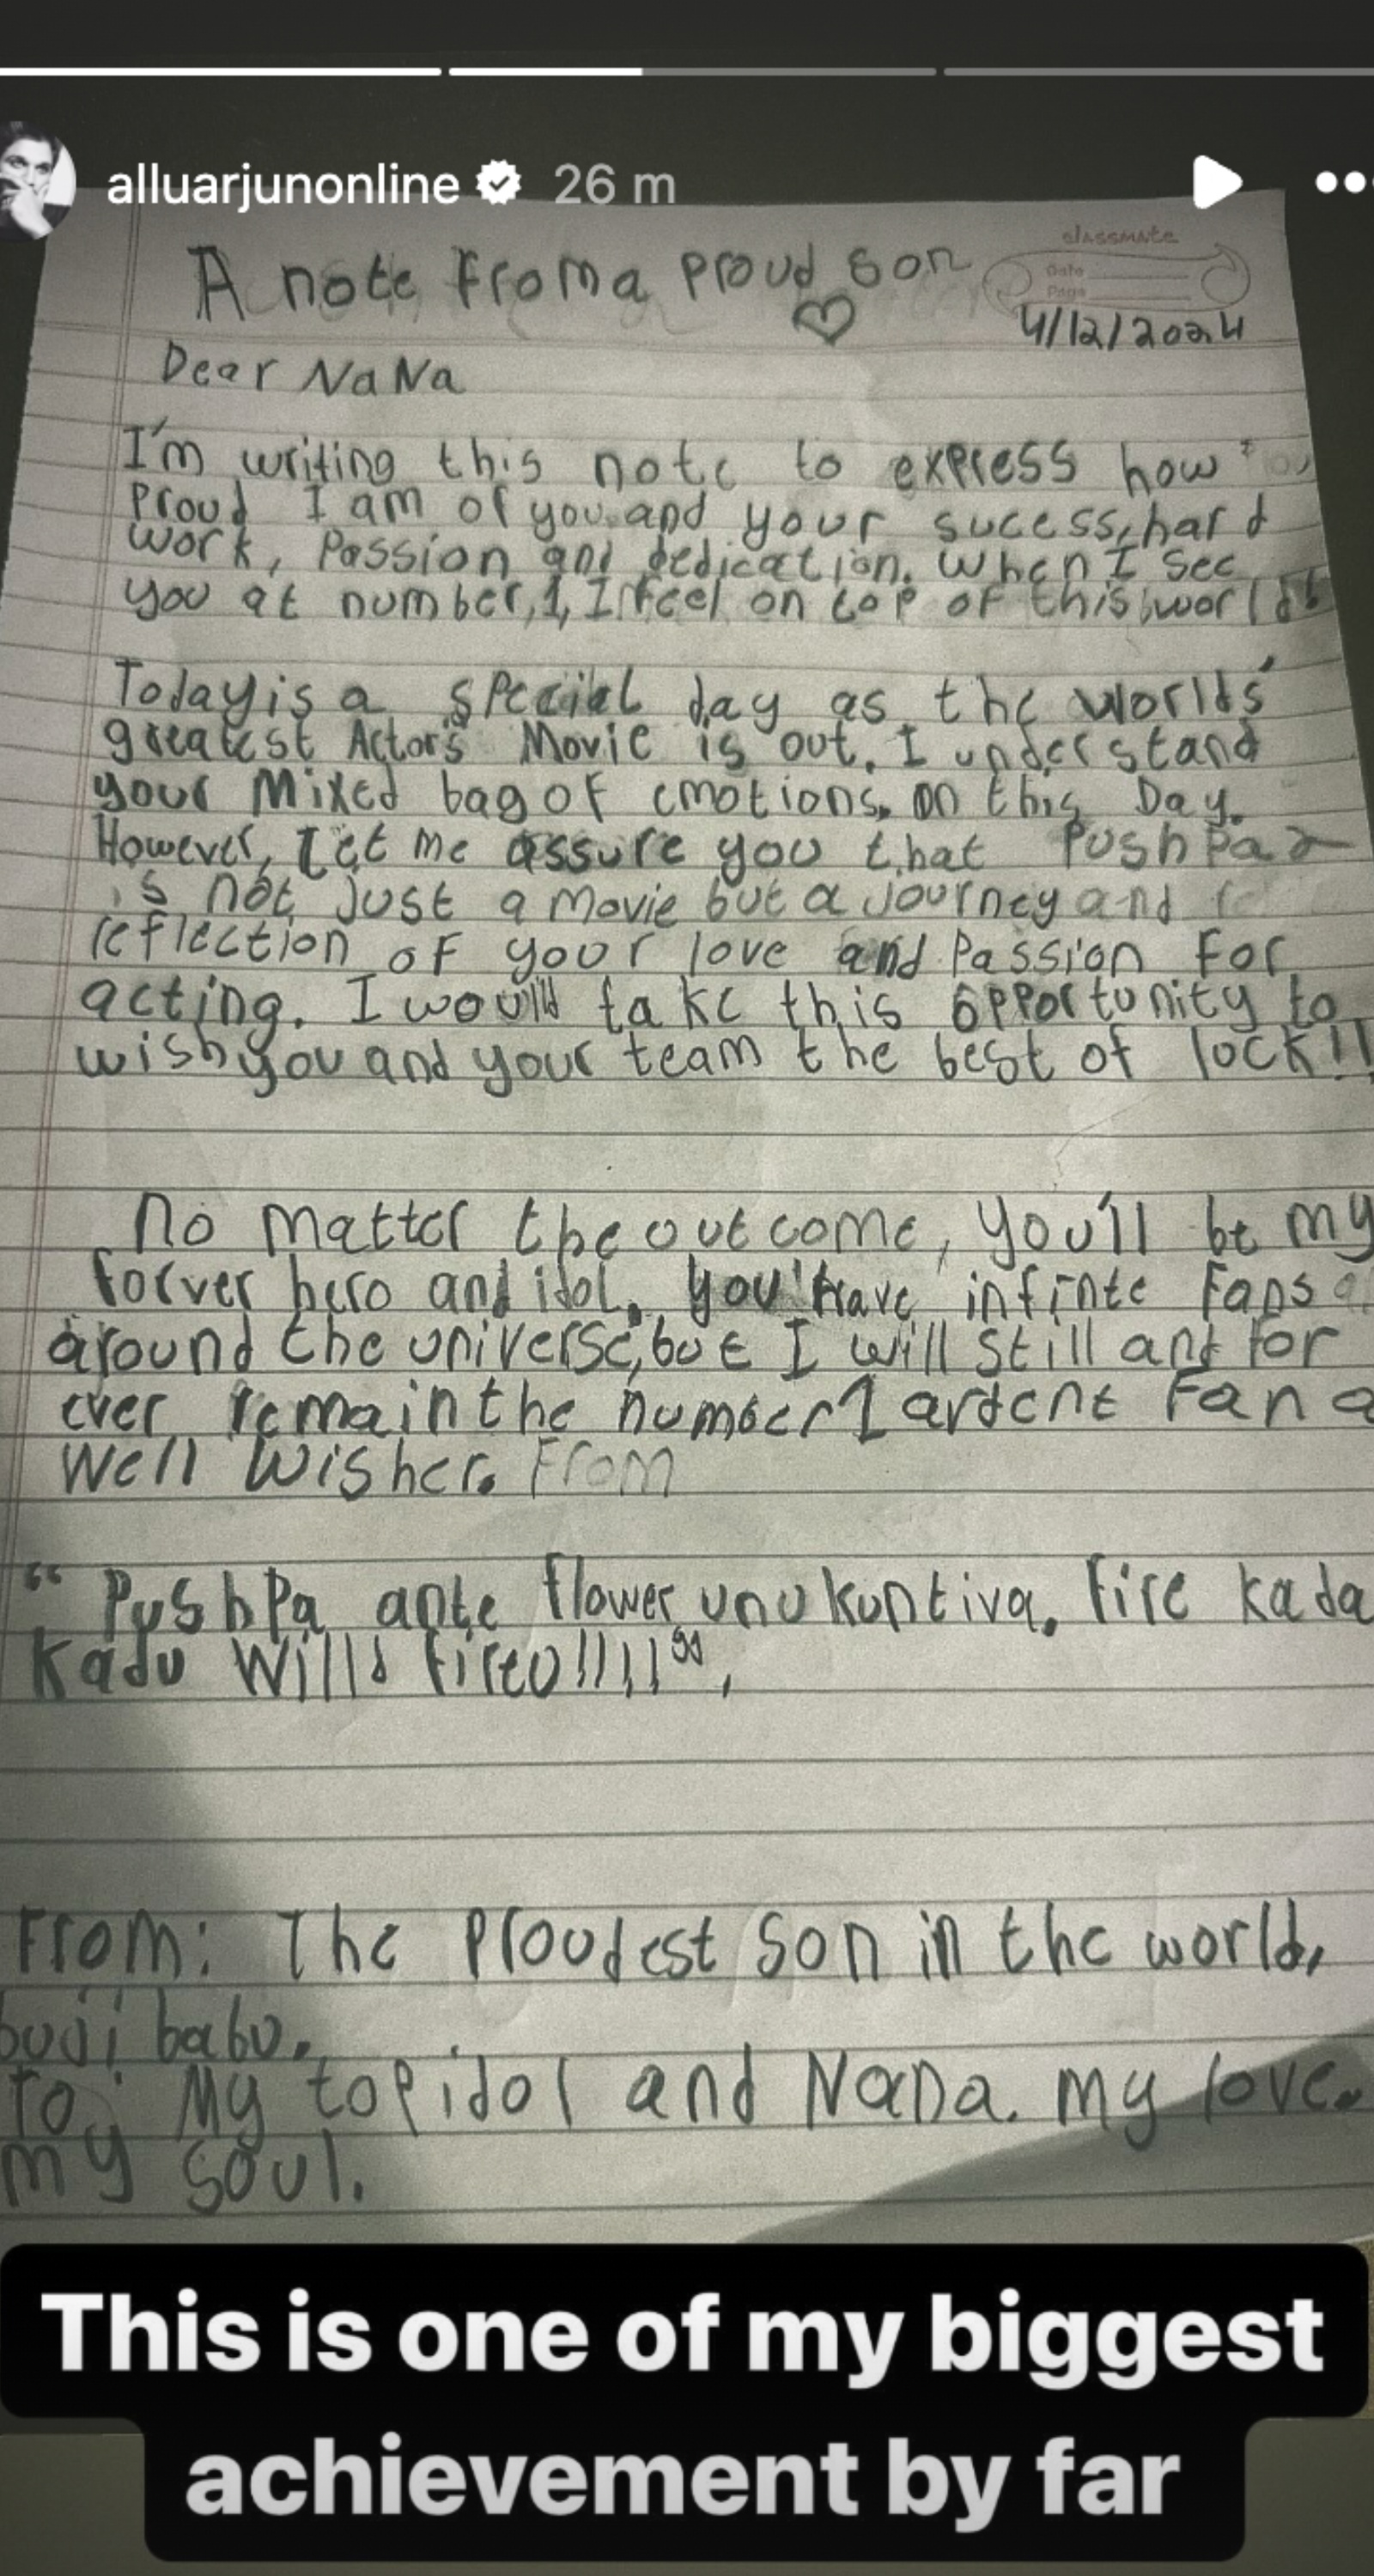 alluarjunonline 26 m
classmate
Date
Page
A note from a proud son
4/12/2024
Dear NaNa
I'm writing this note to express how
Proud I am of you and your sucess, hard
work, Passion and dedication. When I see
you at number, 1, I feel on top of this world!
Today is a special day as the worlds'
greatest Actor's Movie is out. I understand
your Mixed bag of emotions. on this Day.
However, Let me assure you that PushPa 2
is not just a movie but a journey and
reflection of your love and Passion For
acting. I would take this opportunity to
wish you and your team the best of luck!!
No matter the outcome, you'll be my
forver hero and idol. you have infinte Fans
around the universe, but I will still and for
ever remain the number 1 ardent Fan a
Well Wisher. From
“ PushPa ante flower unukuntiva. Fire kada
Kadu Willd fireu!!!!!”,
From: The Proudest son in the world,
buji babu.
To: My top idol and Nana. my love.
my soul.
This is one of my biggest
achievement by far